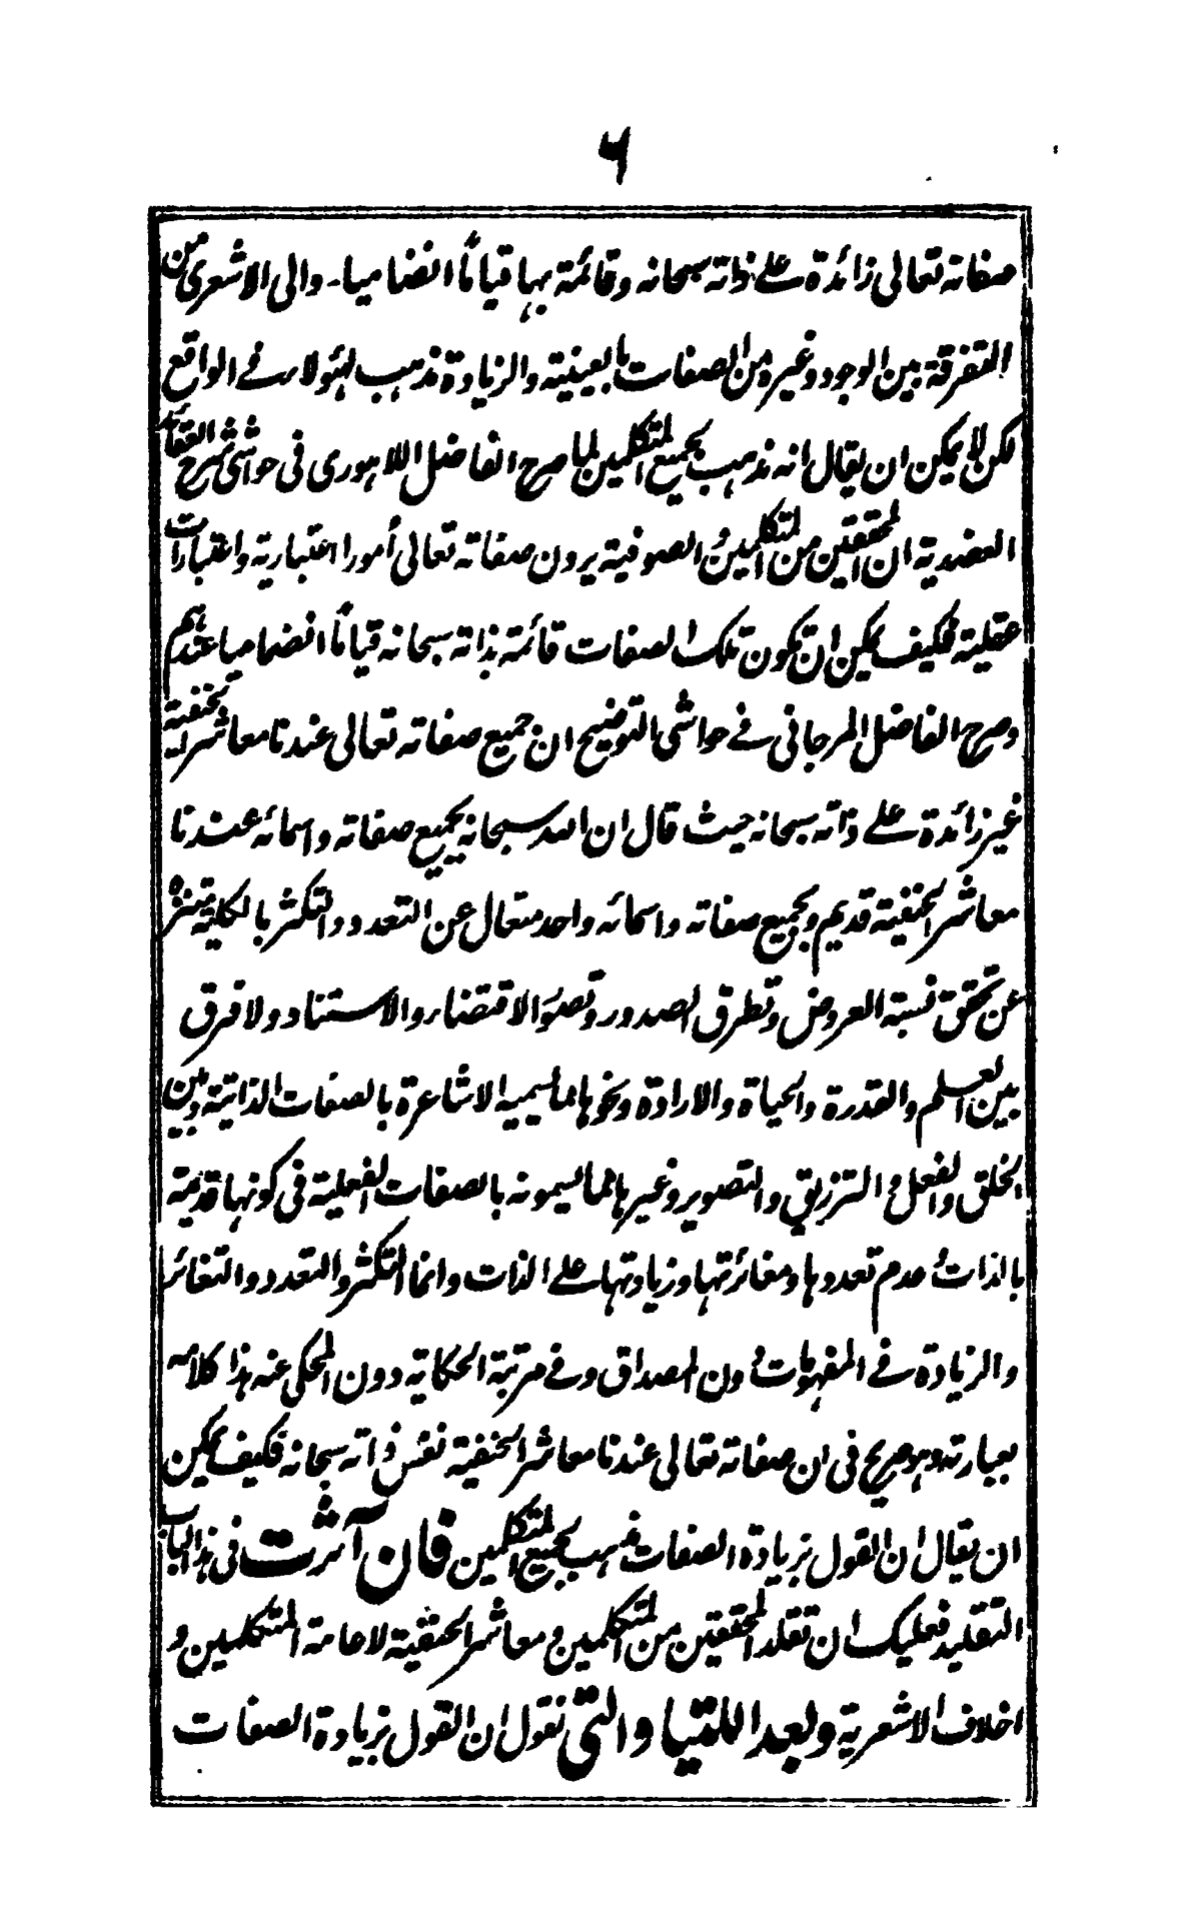 ٦
صفاته تعالى زائدة على ذاته سبحانه وقائمة بها قياماً انضماميا۔ والى الاشعرى من
التفرقة بين الوجود وغيره من الصفات بالعينية والزيادة مذهب لهؤلاء في الواقع
لكن لا يمكن ان يقال انه مذهب لجميع المتكلمين لما صرح الفاضل اللاهورى فى حواشى شرح العقائد
العضدية ان المحققين من المتكلمين و الصوفية يرون صفاته تعالى أمورا اعتبارية واعتبارات
عقلية فكيف يمكن ان تكون تلك الصفات قائمة بذاته سبحانه قياماً انضماميا عندهم
وصرح الفاضل المرجانى في حواشى التوضيح ان جميع صفاته تعالى عندنا معاشر الحنفية
غير زائدة على ذاته سبحانه حيث قال ان الله سبحانه بجميع صفاته واسمائه عندنا
معاشر الحنفية قديم وبجميع صفاته واسمائه واحد متعال عن التعدد والتكثر بالكلية متنزه
عن تحقق نسبة العروض وتطرق الصدور وتصور الاقتضاء والاستناد ولا فرق
بين العلم والقدرة والحياة والارادة ونحوها مما يسميه الاشاعرة بالصفات الذاتية وبين
الخلق والفعل و الترزيق والتصوير وغيرها مما يسمونه بالصفات الفعلية فى كونها قديمة
بالذات و عدم تعددها ومغائرتها وزيادتها على الذات وانما التكثر والتعدد والتغائر
والزيادة في المفهومات دون المصداق وفي مرتبة الحكاية دون المحكى عنه هذا كلامه
بعبارته وهو صريح فى ان صفاته تعالى عندنا معاشر الحنفية نفس ذاته سبحانه فكيف يمكن
ان يقال ان القول بزيادة الصفات مذهب لجميع المتكلمين فان آثرت فى هذا الباب
التقليد فعليك ان تقلد المحققين من المتكلمين ومعاشر الحنفية لا عامة المتكلمين و
اخلاف الاشعرية وبعد اللتيا والتى نقول ان القول بزيادة الصفات